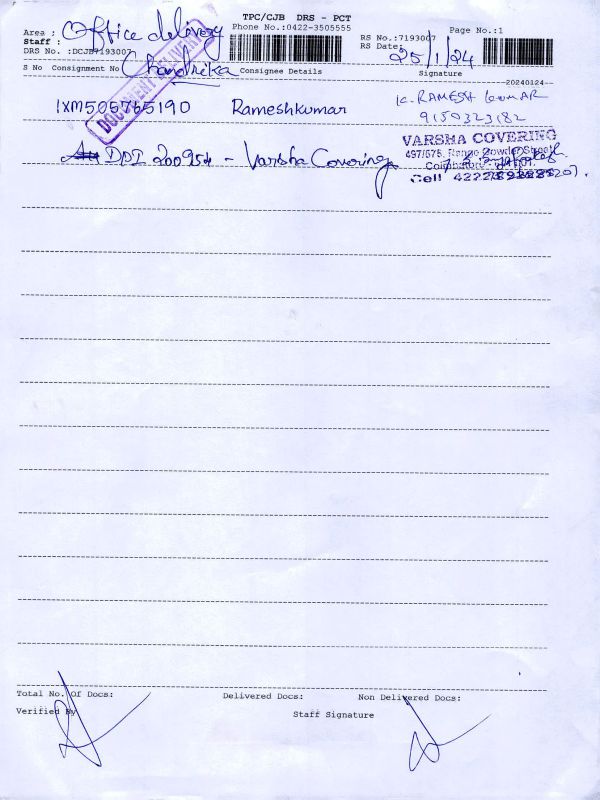 TPC/CJB DRS - PCT
Area : Office delivery
Phone No.:0422-3505555
RS No.:7193007
Page No.:1
Staff :
RS Date: 25/1/24
DRS No. :DCJB7193007
Chandrika
S No Consignment No Consignee Details Signature
20240124
DOCUMENT
1XM505765190 Rameshkumar K. RAMESH KUMAR
9150323182
VARSHA COVERING
DPI 200954 - Varsha Covering
497/575, Street
Cell
Total No. Of Docs: Delivered Docs: Non Delivered Docs:
Verified By
Staff Signature